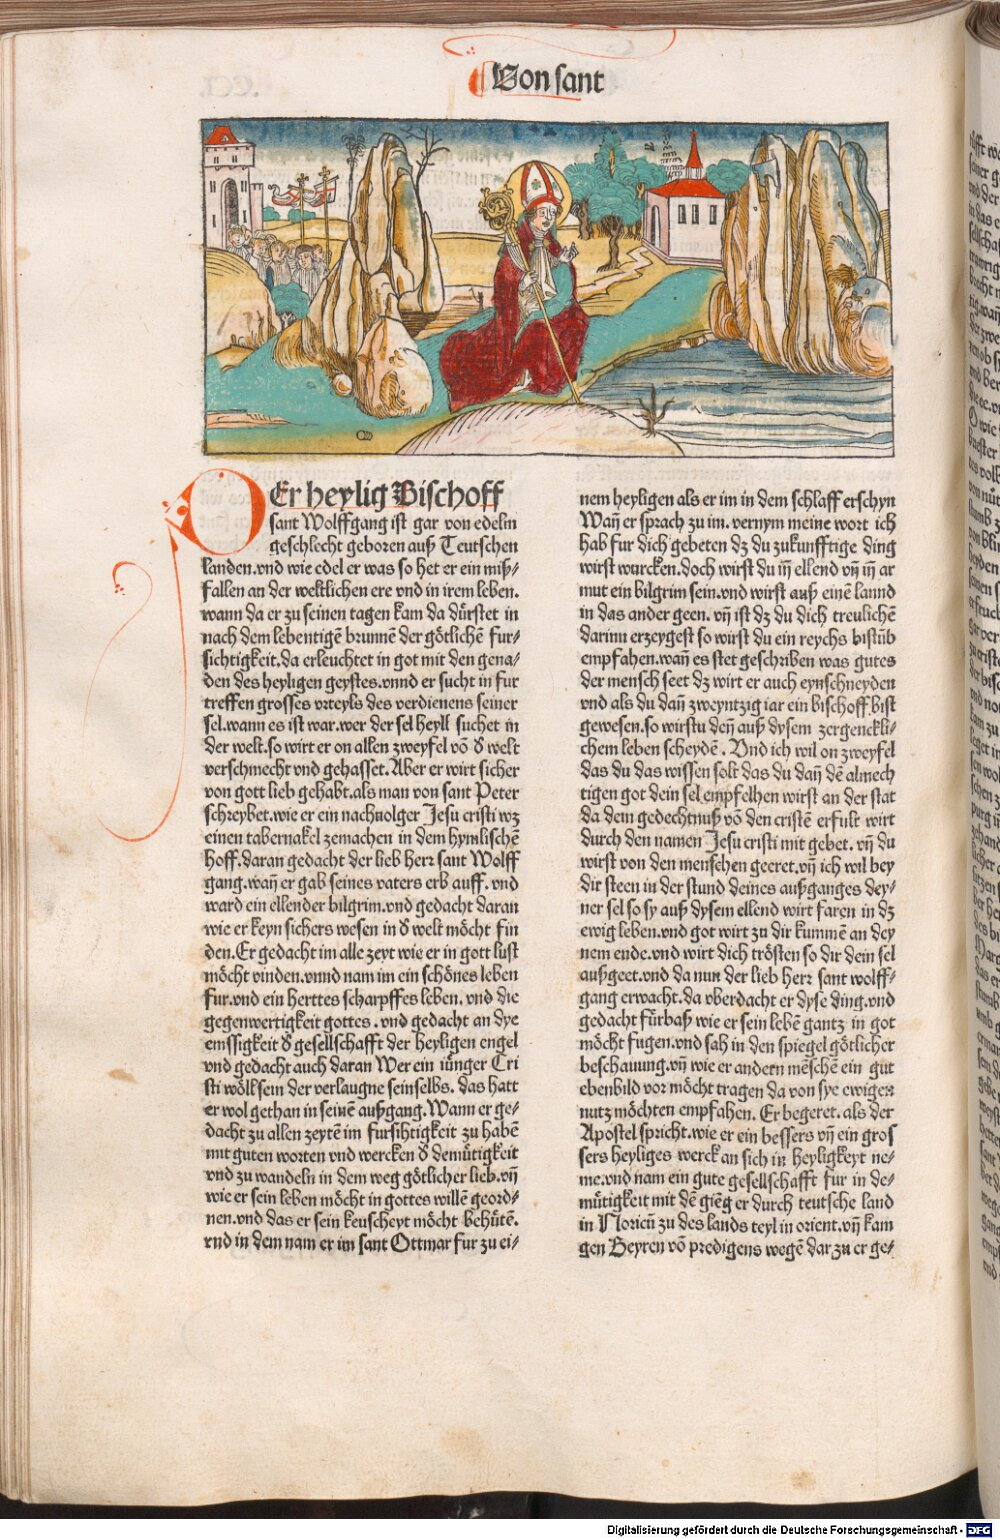 Von sant
DEr heylig Bischoff
sant Wolffgang ist gar von edelm
geschlecht geboren auß Teutschen
landen.vnd wie edel er was so het er ein miß⸗
fallen an der weltlichen ere vnd in irem leben.
wann da er zu seinen tagen kam da dürstet in
nach dem lebentigē brunnē der götlichē fur⸗
sichtigkeit.da erleuchtet in got mit den gena⸗
den des heyligen geystes.vnnd er sucht in fur
treffen grosses vrteyls des verdienens seiner
sel.wann es ist war.wer der sel heyll suchet in
der welt.so wirt er on allen zweyfel vō d̕ welt
verschmecht vnd gehasset.Aber er wirt sicher
von gott lieb gehabt.als man von sant Peter
schreybet.wie er ein nachuolger Jesu cristi wz
einen tabernakel zemachen in dem hymlischē
hoff.daran gedacht der lieb herr sant Wolff
gang.wañ er gab seines vaters erb auff.vnd
ward ein ellender bilgrim.vnd gedacht daran
wie er keyn sichers wesen in d̕ welt möcht fin
den.Er gedacht im alle zeyt wie er in gott lust
möcht vinden.vnnd nam im ein schönes leben
fur.vnd ein herttes scharpffes leben.vnd die
gegenwertigkeit gottes.vnd gedacht an dye
emssigkeit d̕ gesellschafft der heyligen engel
vnd gedacht auch daran Wer ein iünger Cri
sti wöll sein der verlaugne seinselbs.das hatt
er wol gethan in seinē außgang.Wann er ge⸗
dacht zu allen zeytē im fursihtigkeit zu habē
mit guten worten vnd wercken d̕ demütigkeit
vnd zu wandeln in dem weg götlicher lieb.vñ
wie er sein leben möcht in gottes willē geord⸗
nen.vnd das er sein keuscheyt möcht behütē.
vnd in dem nam er im sant Ottmar fur zu ei⸗
nem heyligen als er im in dem schlaff erschyn
Wañ er sprach zu im.vernym meine wort ich
hab fur dich gebeten dz du zukunfftige ding
wirst wurcken.doch wirst du iñ ellend vñ iñ ar
mut ein bilgrim sein.vnd wirst auß einē lannd
in das ander geen.vñ ist dz du dich treulichē
darinn erzeygest so wirst du ein reychs bistūb
empfahen.wañ es stet geschriben was gutes
der mensch seet dz wirt er auch eynschneyden
vnd als du dañ zweyntzig iar ein bischoff bist
gewesen.so wirstu deñ auß dysem zergenckli⸗
chem leben scheydē.Vnd ich wil on zweyfel
das du das wissen solt das du dañ dē almech
tigen got dein sel empfelhen wirst an der stat
da dem gedechtnuß vō den cristē erfult wirt
durch den namen Jesu cristi mit gebet.vñ du
wirst von den menschen geeret.vñ ich wil bey
dir steen in der stund deines außganges dey⸗
ner sel so sy auß dysem ellend wirt faren in dz
ewig leben.vnd got wirt zu dir kummē an dey
nem ende.vnd wirt dich trösten so dir dein sel
außgeet.vnd da nun der lieb herr sant wolff⸗
gang erwacht.da vberdacht er dyse ding.vnd
gedacht fürbaß wie er sein lebē gantz in got
möcht fugen.vnd sah in den spiegel götlicher
beschauung.vñ wie er andern mēschē ein gut
ebenbild vor möcht tragen da von sye ewigen
nutz möchten empfahen.Er begeret.als der
Apostel spricht.wie er ein bessers vñ ein gros
sers heyliges werck an sich in heyligkeyt ne⸗
me.vnd nam ein gute gesellschafft fur in de⸗
mütigkeit mit dē gieng er durch teutsche land
in Noricū zu des lands teyl in orient.vñ kam
gen Beyren vō predigens wegē dar zu er ge⸗
Digitalisierung gefördert durch die Deutsche Forschungsgemeinschaft - DFG